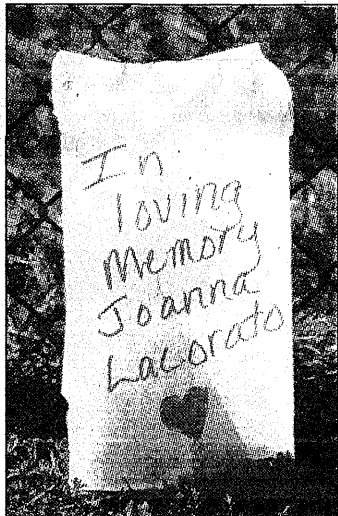 In
loving
Memory
Joanna
Lacorato